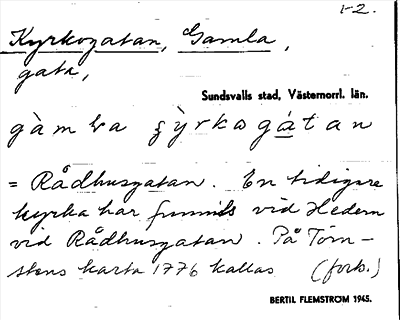 1-2.
Kyrkogatan, Gamla,
gata,
Sundsvalls stad, Västernorrl. län.
= Rådhusgatan. En tidigare
kyrka har funnits vid Hedern
vid Rådhusgatan. På Törn-
stens karta 1776 kallas (forts.)
BERTIL FLEMSTRÖM 1945.